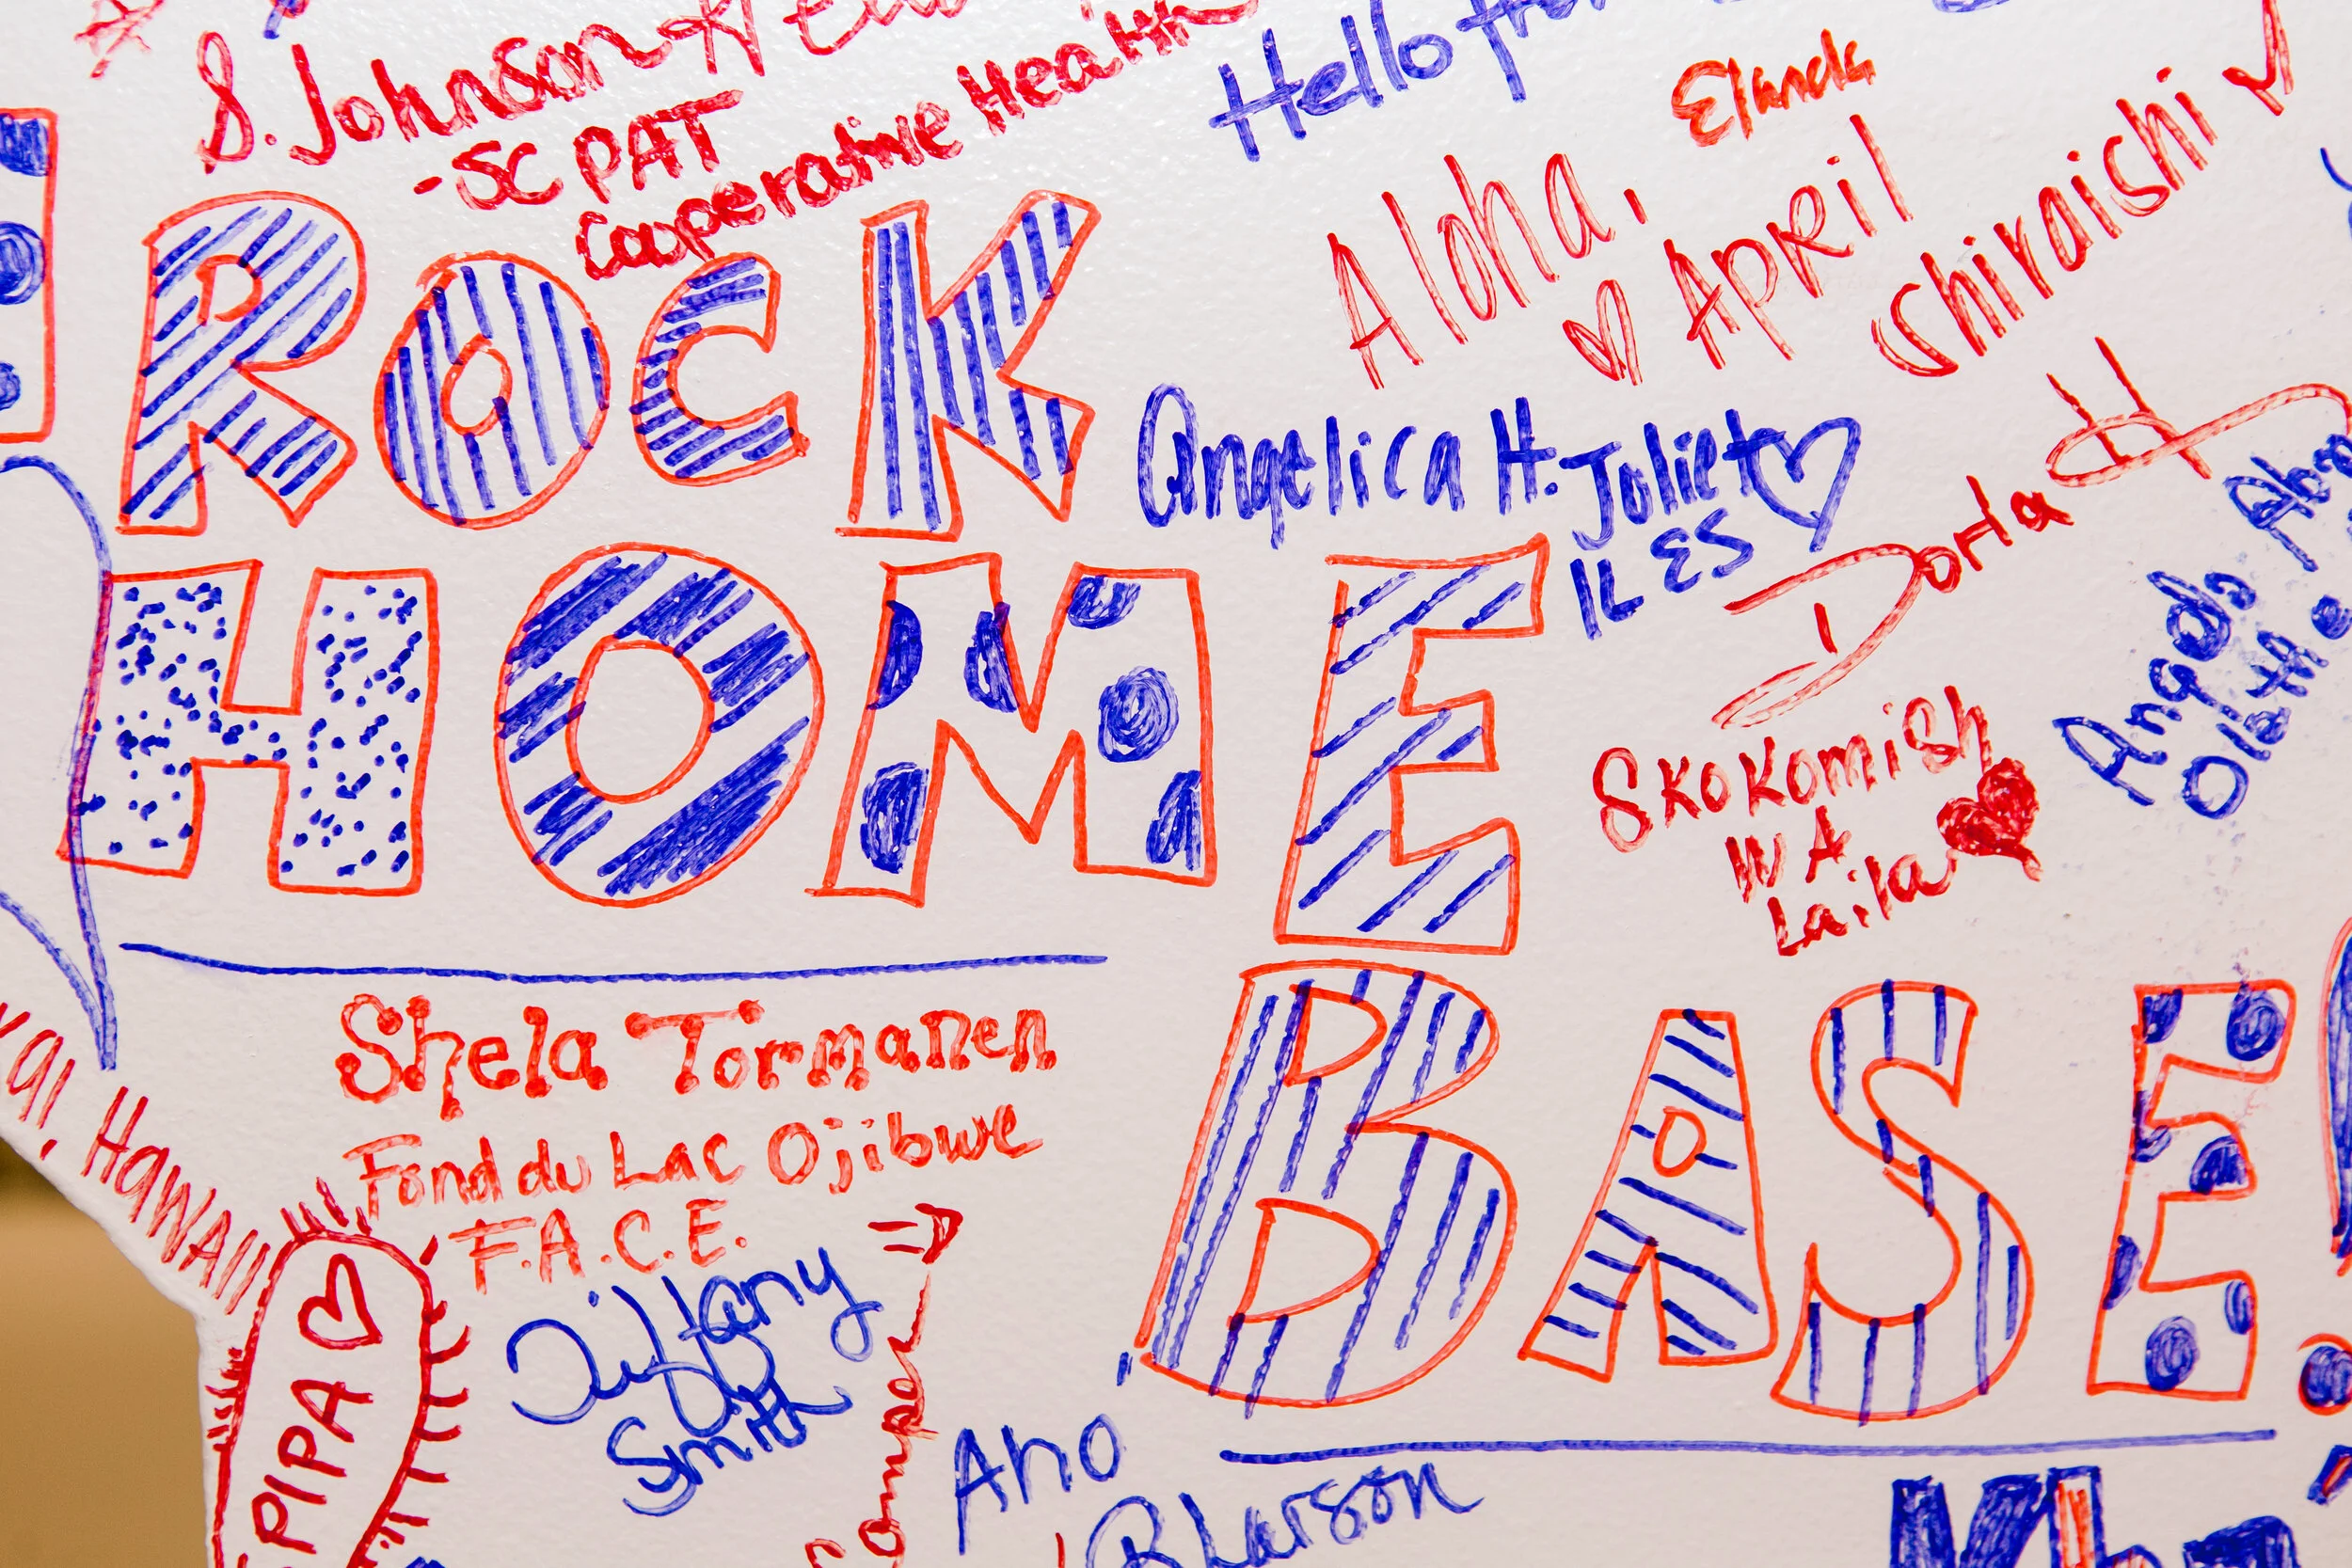 S. Johnson
-SC PAT
Cooperative Health
Hello from
Elanda
Aloha,
April
Shiraishi
ROCK
Angelica H. Joliet
IL ES
HOME
Dorla H
SKOKOMISH
WA
Laila
Angela
Olathe
Shela Tormanen
Fond du Lac Ojibwe
F.A.C.E.
BASE!
HAWAII
PIPA
Tiffany
Smith
Aho
B Larson